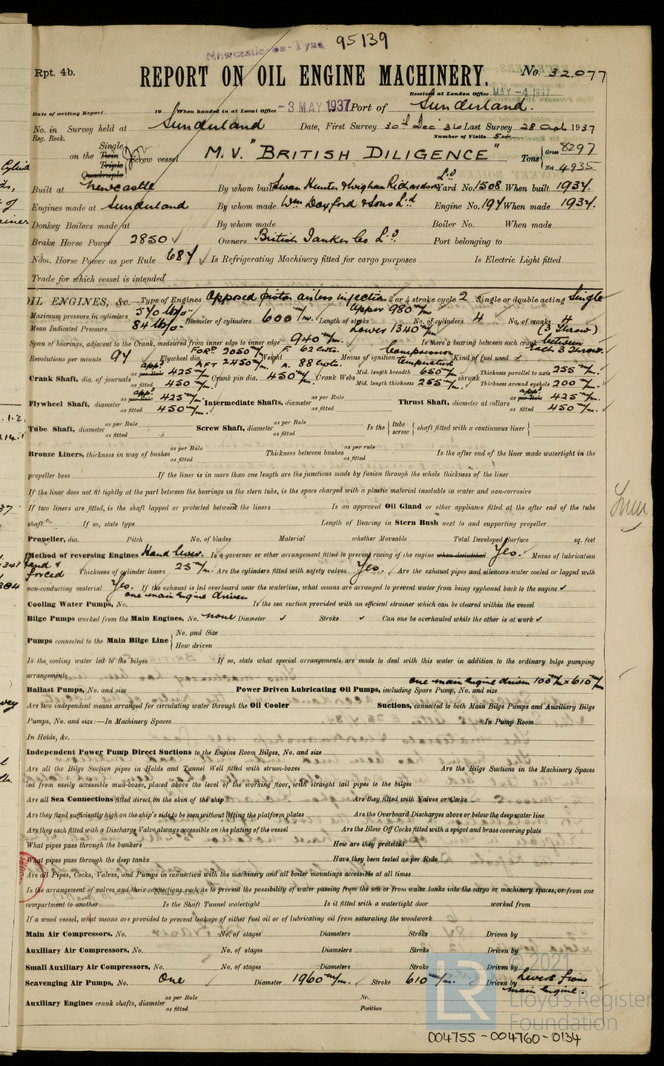 Newcastle-on-Tyne 95139
Rpt. 4b.
REPORT ON OIL ENGINE MACHINERY. No. 32,077
Received at London Office MAY -4 1937
Date of writing Report 19 When handed in at Local Office -3 MAY 1937 Port of Sunderland.
No. in Reg. Book. Survey held at Sunderland Date, First Survey 30th Dec 36 Last Survey 28 Apl 1937
Number of Visits
Single
on the Twin Triple Quadruple Screw vessel M.V. "BRITISH DILIGENCE" Tons Gross 8297 Net 4935
Built at Newcastle By whom built Swan Hunter & Wigham Richardson Ld Yard No. 1508 When built 1937.
Engines made at Sunderland By whom made Wm Doxford & Sons Ld Engine No. 194 When made 1937.
Donkey Boilers made at By whom made Boiler No. When made
Brake Horse Power 2850 Owners British Tanker Co Ld Port belonging to
Nom. Horse Power as per Rule 687 Is Refrigerating Machinery fitted for cargo purposes Is Electric Light fitted
Trade for which vessel is intended
OIL ENGINES, &c.—Type of Engines Opposed piston airless injection 2 or 4 stroke cycle 2 Single or double acting Single
Maximum pressure in cylinders 570 lbs/o" Diameter of cylinders 600 m/m. Length of stroke Upper 980 m/m Lower 1340 m/m No. of cylinders 4 No. of cranks 4 (3 Throw)
Mean Indicated Pressure 84 lbs/o"
Span of bearings, adjacent to the Crank, measured from inner edge to inner edge 940 m/m. Is there a bearing between each crank between each 3 Throw.
Revolutions per minute 94 Flywheel dia. FOR'D 2050 m/m AFT 2450 m/m Weight F. 62 cwts. A. 88 cwts. Means of ignition Compression temperature Kind of fuel used
Crank Shaft, dia. of journals as per Rule appd 425 m/m as fitted 450 m/m. Crank pin dia. 450 m/m. Crank Webs Mid. length breadth 650 m/m Mid. length thickness 255 m/m shrunk Thickness parallel to axis 255 m/m Thickness around eyehole 200 m/m
Flywheel Shaft, diameter as per Rule appd 425 m/m as fitted 450 m/m. Intermediate Shafts, diameter as per Rule as fitted Thrust Shaft, diameter at collars as per Rule appd 425 m/m as fitted 450 m/m.
Tube Shaft, diameter as per Rule as fitted Screw Shaft, diameter as per Rule as fitted Is the { tube screw } shaft fitted with a continuous liner {
Bronze Liners, thickness in way of bushes as per Rule as fitted Thickness between bushes as per rule as fitted Is the after end of the liner made watertight in the
propeller boss If the liner is in more than one length are the junctions made by fusion through the whole thickness of the liner
If the liner does not fit tightly at the part between the bearings in the stern tube, is the space charged with a plastic material insoluble in water and non-corrosive
If two liners are fitted, is the shaft lapped or protected between the liners Is an approved Oil Gland or other appliance fitted at the after end of the tube
shaft If so, state type Length of Bearing in Stern Bush next to and supporting propeller
Propeller, dia. Pitch No. of blades Material whether Moveable Total Developed Surface sq. feet
Method of reversing Engines Hand lever. Is a governor or other arrangement fitted to prevent racing of the engine when declutched Yes. Means of lubrication
Hand & forced Thickness of cylinder liners 25 m/m. Are the cylinders fitted with safety valves Yes. Are the exhaust pipes and silencers water cooled or lagged with
non-conducting material Yes. If the exhaust is led overboard near the waterline, what means are arranged to prevent water from being syphoned back to the engine
Cooling Water Pumps, No. one main engine driven Is the sea suction provided with an efficient strainer which can be cleared within the vessel
Bilge Pumps worked from the Main Engines, No. none Diameter Stroke Can one be overhauled while the other is at work
Pumps connected to the Main Bilge Line { No. and Size
How driven
Is the cooling water led to the bilges If so, state what special arrangements are made to deal with this water in addition to the ordinary bilge pumping
arrangements
Ballast Pumps, No. and size Power Driven Lubricating Oil Pumps, including Spare Pump, No. and size one main engine driven 103 m/m x 610 m/m
Are two independent means arranged for circulating water through the Oil Cooler Suctions, connected to both Main Bilge Pumps and Auxiliary Bilge
Pumps, No. and size:—In Machinery Spaces In Pump Room
In Holds, &c.
Independent Power Pump Direct Suctions to the Engine Room Bilges, No. and size
Are all the Bilge Suction pipes in Holds and Tunnel Well fitted with strum-boxes Are the Bilge Suctions in the Machinery Spaces
led from easily accessible mud-boxes, placed above the level of the working floor, with straight tail pipes to the bilges
Are all Sea Connections fitted direct on the skin of the ship Are they fitted with Valves or Cocks
Are they fixed sufficiently high on the ship's side to be seen without lifting the platform plates Are the Overboard Discharges above or below the deep water line
Are they each fitted with a Discharge Valve always accessible on the plating of the vessel Are the Blow Off Cocks fitted with a spigot and brass covering plate
What pipes pass through the bunkers How are they protected
What pipes pass through the deep tanks Have they been tested as per Rule
Are all Pipes, Cocks, Valves, and Pumps in connection with the machinery and all boiler mountings accessible at all times
Is the arrangement of valves and their connections such as to prevent the possibility of water passing from the sea or from water tanks into the cargo or machinery spaces, or from one
compartment to another Is the Shaft Tunnel watertight Is it fitted with a watertight door worked from
If a wood vessel, what means are provided to prevent leakage of either fuel oil or of lubricating oil from saturating the woodwork
Main Air Compressors, No. No. of stages Diameters Stroke Driven by
Auxiliary Air Compressors, No. No. of stages Diameters Stroke Driven by
Small Auxiliary Air Compressors, No. No. of stages Diameters Stroke Driven by
Scavenging Air Pumps, No. One Diameter 1960 m/m. Stroke 610 m/m. Driven by Levers from main engine.
Auxiliary Engines crank shafts, diameter as per Rule as fitted No. Position
© 2021
LR Lloyd's Register Foundation
004755-004760-0134